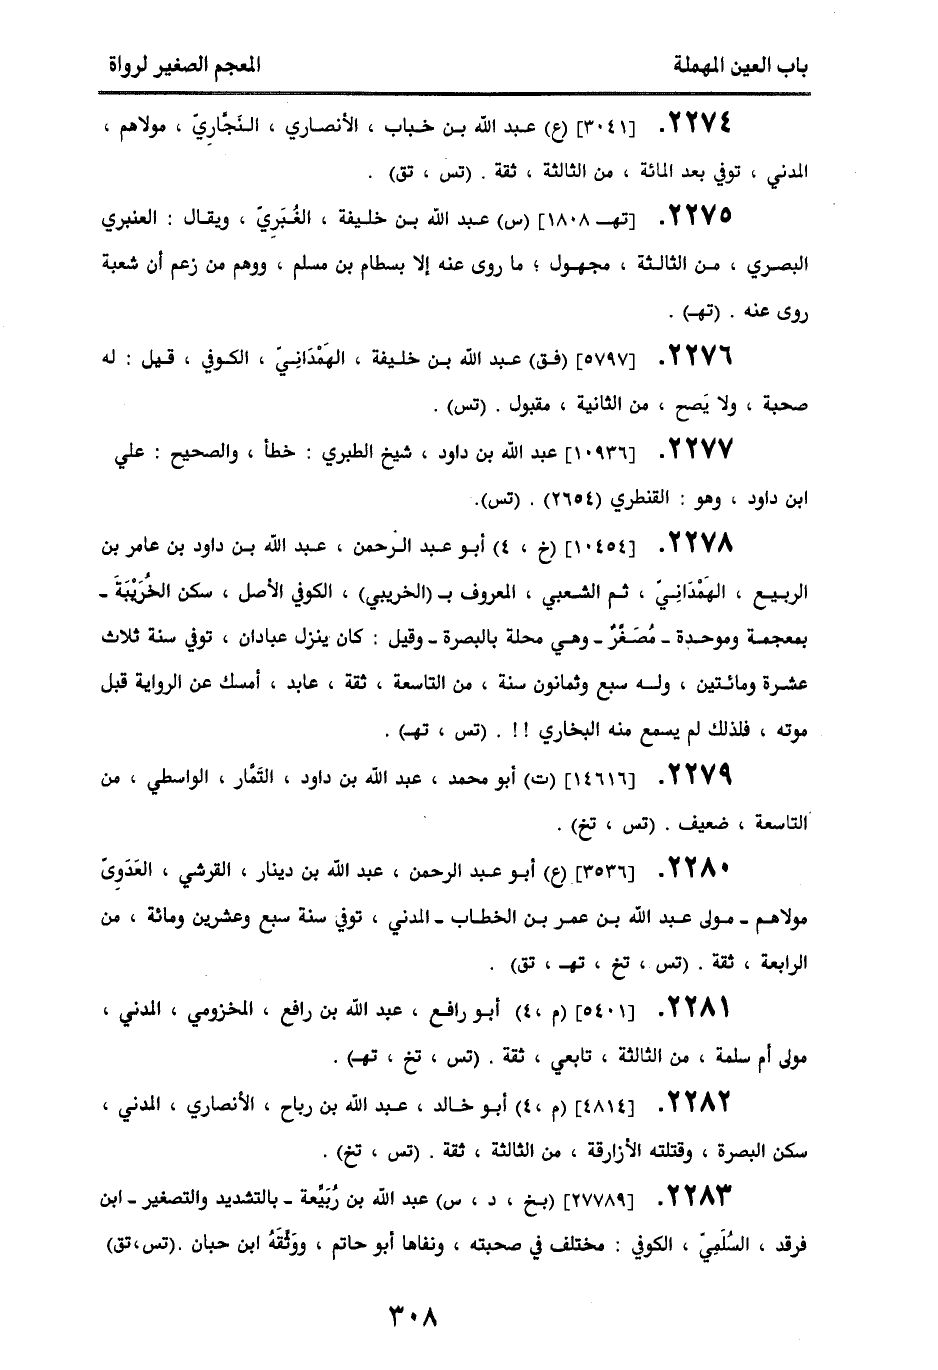 باب العين المهملة
المعجم الصغير لرواة
٢٢٧٤. [٣٠٤١] (ع) عبد الله بن خباب ، الأنصاري ، النَجَّارِيّ ، مولاهم ،
المدني ، توفي بعد المائة ، من الثالثة ، ثقة . (تس ، تق) .
٢٢٧٥. [تهـ ١٨٠٨] (س) عبد الله بن خليفة ، الغُبَرِيّ ، ويقال : العنبري
البصري ، من الثالثة ، مجهول ؛ ما روى عنه إلا بسطام بن مسلم ، ووهم من زعم أن شعبة
روى عنه . (تهـ) .
٢٢٧٦. [٥٧٩٧] (فق) عبد الله بن خليفة ، الهَمْدَانِيّ ، الكوفي ، قيل : له
صحبة ، ولا يَصح ، من الثانية ، مقبول . (تس) .
٢٢٧٧. [١٠٩٣٦] عبد الله بن داود ، شيخ الطبري : خطأ ، والصحيح : علي
ابن داود ، وهو : القنطري (٢٦٥٤) . (تس).
٢٢٧٨. [١٠٤٥٤] (خ ، ٤) أبو عبد الرّحمن ، عبد الله بن داود بن عامر بن
الربيع ، الهَمْدَانِيّ ، ثم الشعبي ، المعروف بـ (الخريبي) ، الكوفي الأصل ، سكن الخُرَيْبَةَ ـ
بمعجمة وموحدة ـ مُصَغَّرٌ ـ وهي محلة بالبصرة ـ وقيل : كان ينزل عبادان ، توفي سنة ثلاث
عشرة ومائتين ، وله سبع وثمانون سنة ، من التاسعة ، ثقة ، عابد ، أمسك عن الرواية قبل
موته ، فلذلك لم يسمع منه البخاري !! . (تس ، تهـ) .
٢٢٧٩. [١٤٦١٦] (ت) أبو محمد ، عبد الله بن داود ، التَمَّار ، الواسطي ، من
التاسعة ، ضعيف . (تس ، تخ) .
٢٢٨٠. [٣٥٣٦] (ع) أبو عبد الرحمن ، عبد الله بن دينار ، القرشي ، العَدَوِيّ
مولاهم ـ مولى عبد الله بن عمر بن الخطاب ـ المدني ، توفي سنة سبع وعشرين ومائة ، من
الرابعة ، ثقة . (تس ، تخ ، تهـ ، تق) .
٢٢٨١. [٥٤٠١] (م ،٤) أبو رافع ، عبد الله بن رافع ، المخزومي ، المدني ،
مولى أم سلمة ، من الثالثة ، تابعي ، ثقة . (تس ، تخ ، تهـ) .
٢٢٨٢. [٤٨١٤] (م ،٤) أبو خالد ، عبد الله بن رباح ، الأنصاري ، المدني ،
سكن البصرة ، وقتلته الأزارقة ، من الثالثة ، ثقة . (تس ، تخ) .
٢٢٨٣. [٢٧٧٨٩] (بخ ، د ، س) عبد الله بن رُبَيِّعة ـ بالتشديد والتصغير ـ ابن
فرقد ، السُلَمِيّ ، الكوفي : مختلف في صحبته ، ونفاها أبو حاتم ، ووَثَّقَهُ ابن حبان .(تس،تق)
٣٠٨